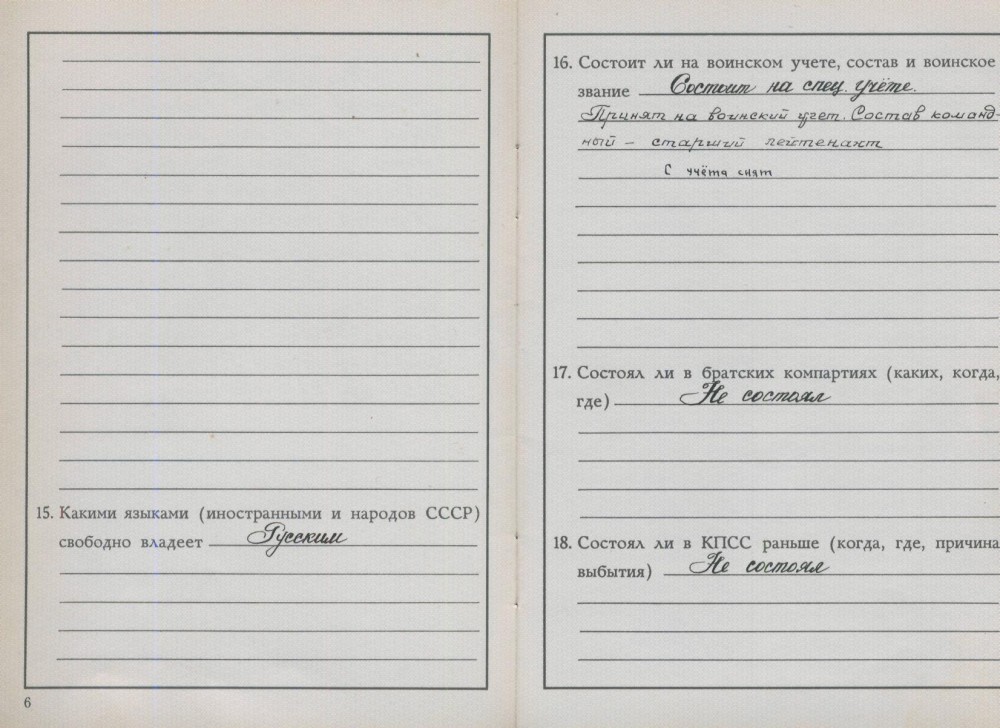 15. Какими языками (иностранными и народов СССР)
свободно владеет Русским
6
16. Состоит ли на воинском учете, состав и воинское
звание Состоит на спец. учёте.
Принят на воинский учет. Состав команд-
ный – старший лейтенант
С учёта снят
17. Состоял ли в братских компартиях (каких, когда,
где) Не состоял
18. Состоял ли в КПСС раньше (когда, где, причина
выбытия) Не состоял